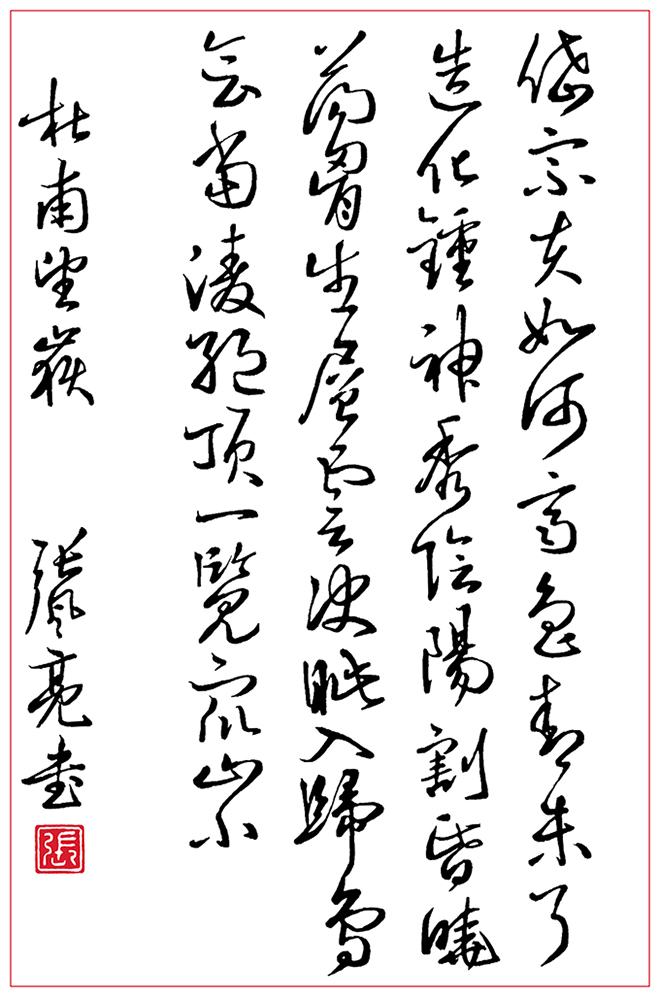 岱宗夫如何齊魯青未了
造化鍾神秀陰陽割昏曉
蕩胷生層雲決眦入歸鳥
會當凌絕頂一覽眾山小
杜甫望嶽 張亮書
張